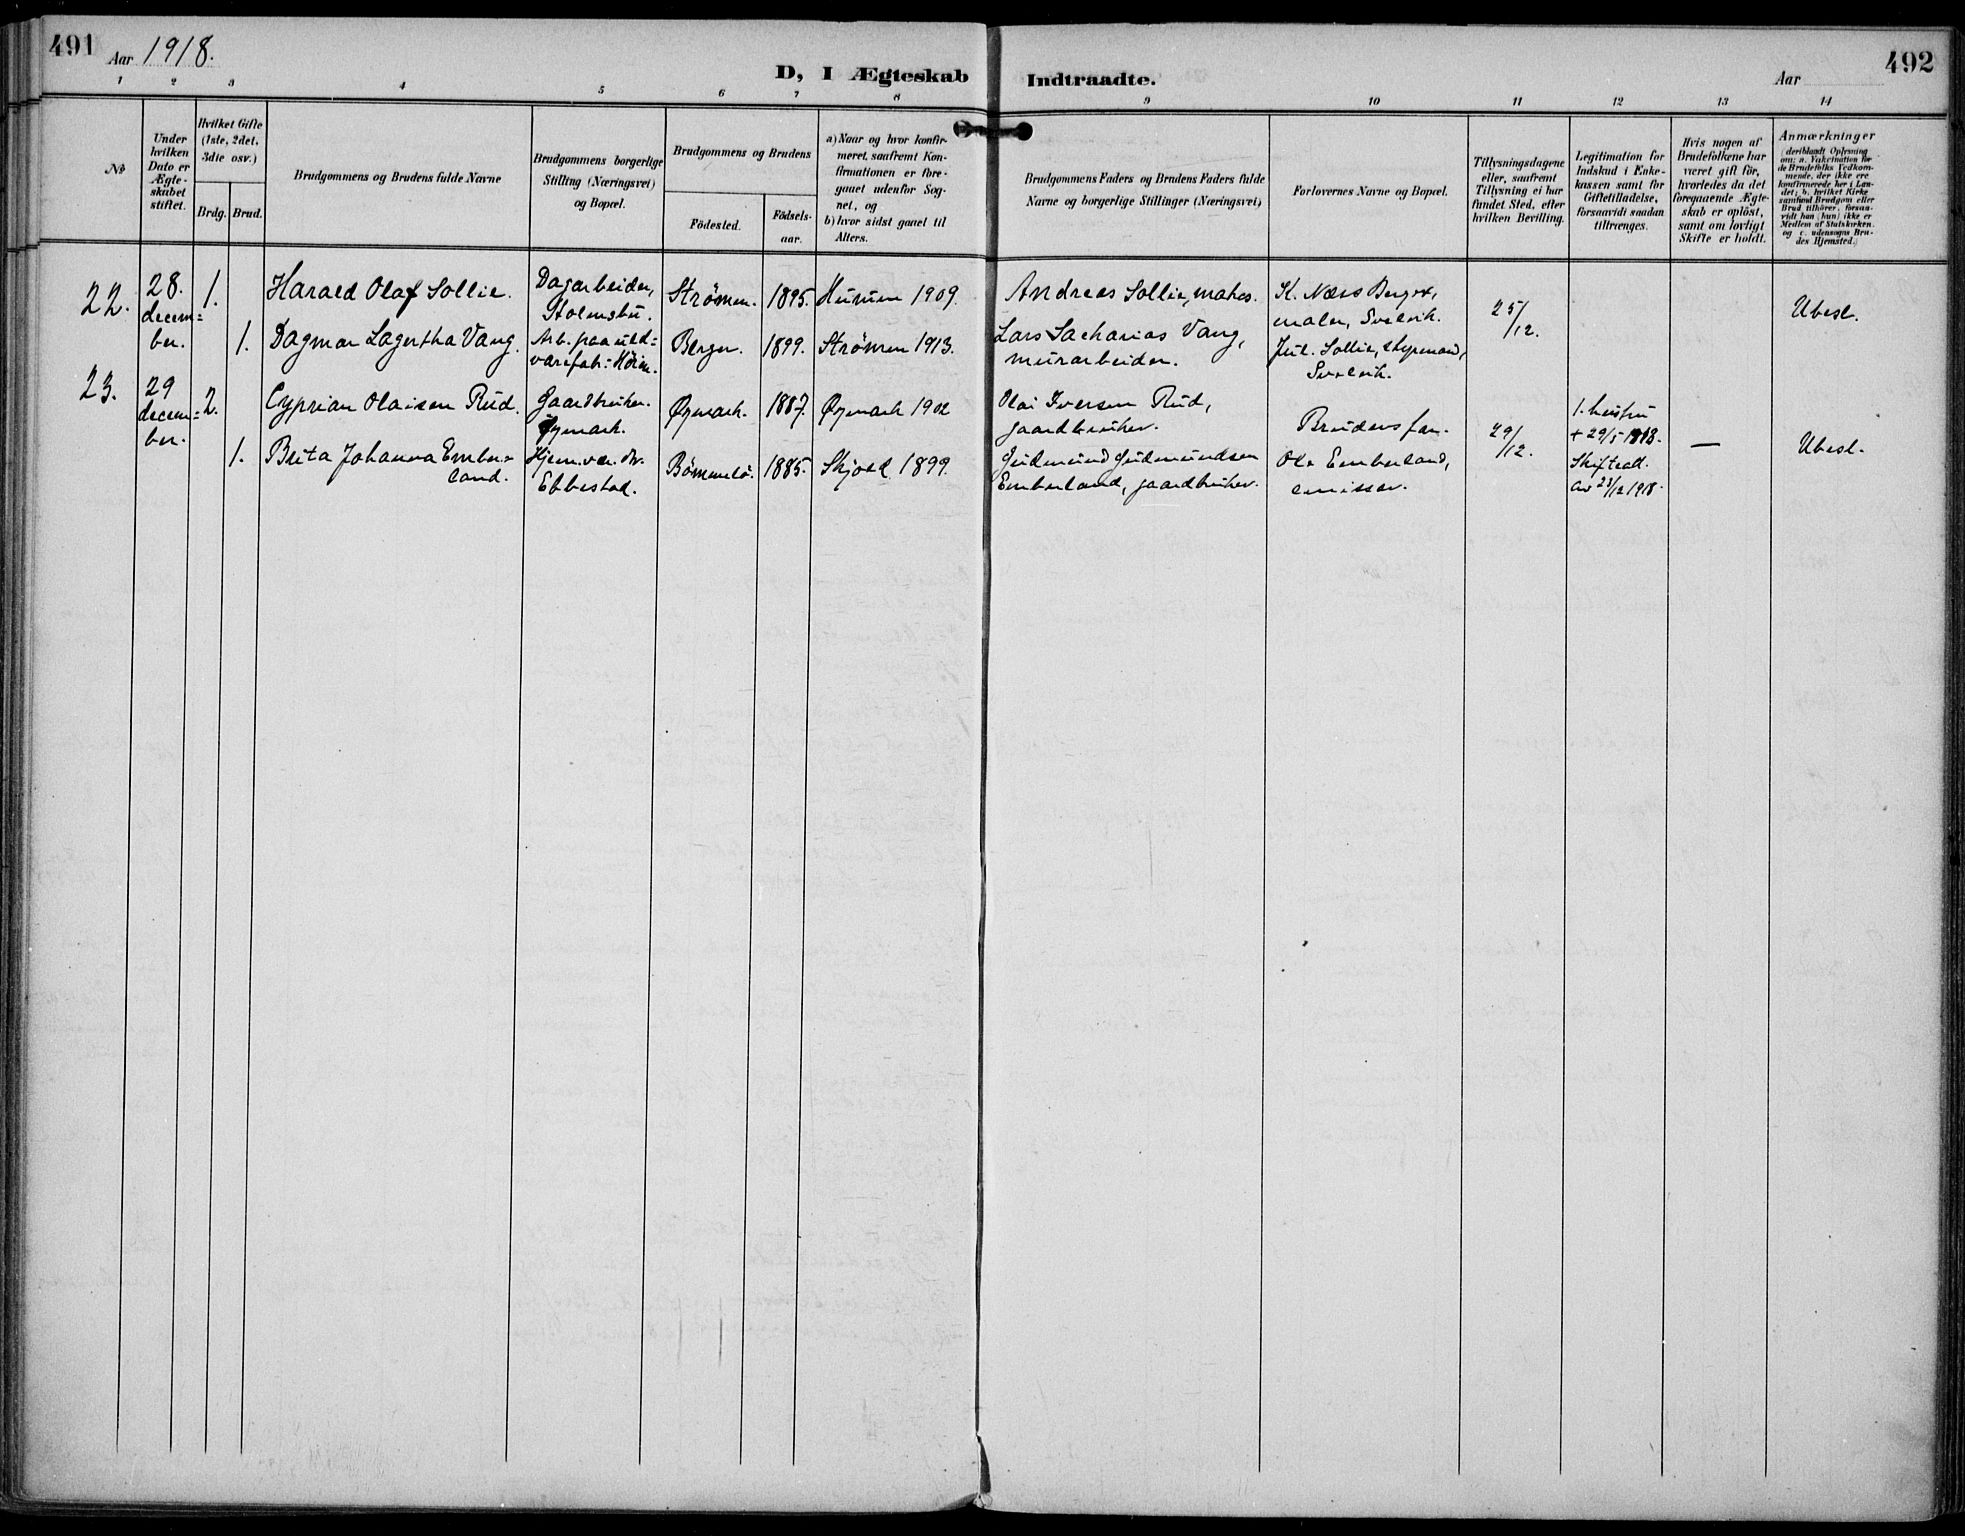 491
Aar 1918.
D, I Ægteskab Indtraadte.
Aar
492
1 2 3 4 5 6 7 8 9 10 11 12 13 14
No
Under hvilken Dato er Ægte-skabet stiftet.
Hvilket Gifte (1ste, 2det, 3die osv.)
Brdg. Brud.
Brudgommens og Brudens fulde Navne
Brudgommens borgerlige Stilling (Næringsvei) og Bopæl.
Brudgommens og Brudens
Födested.
Födsels-aar.
a) Naar og hvor konfir-meret, saafremt Kon-firmationen er fore-gaaet udenfor Sog-net, og
b) hvor sidst gaaet til Alters.
Brudgommens Faders og Brudens Faders fulde Navne og borgerlige Stillinger (Næringsvei)
Forlovernes Navne og Bopæl.
Tillysningsdagene eller, saafremt Tillysning ei har fundet Sted, efter hvilken Bevilling.
Legitimation for Indskud i Enke-kassen samt for Giftetilladelse, forsaavidt saadan tiltrænges.
Hvis nogen af Brudefolkene har været gift för, hvorledes da det foregaaende Ægte-skab er oplöst, samt om lovligt Skifte er holdt.
Anmærkninger (deriblandt Oplysning om: a. Vakcination for de Brudefolks Vedkom-mende, der ikke ere konfirmerede her i Lan-det; b. hvilket Kirke samfund Brudgom eller Brud tilhörer, forsaa-vidt han (hun) ikke er Medlem af Statskirken, og c. udensogns Bru-des Hjemsted.)
22. 28. decem=ber. 1. Harald Olaf Sollie. Dagarbeider, Holmsbu. Strömm. 1895. Hurum 1909. Andreas Sollie, matros. K. Næss Berger, maler, Svelvik. 25/12. Ubesl.
1. Dagmar Lagertha Vang. Arb. paa uld=varefab: Höien. Berger. 1899. Strömm 1913. Lars Sacharias Vang, murarbeider. Jul. Sollie, styrmand, Svelvik.
23. 29 decem=ber. 2. Cyprian Olaisen Rud. Gaardbruker. Øymark. Øymark. 1887. Øymark 1902 Olai Iversen Rud, gaardbruker. Brudens far. 29/12. 1. hustru + 29/5 1918. Skifteatt. av 23/12 1918. — Ubesl.
1. Brita Johanna Ember=land. Hjemvær. dtr. Ebbestad. Bömmelö. 1885. Skjold 1899. Gudmund Gudmundsen Emberland, gaardbruker. Ole Emberland, emissær.